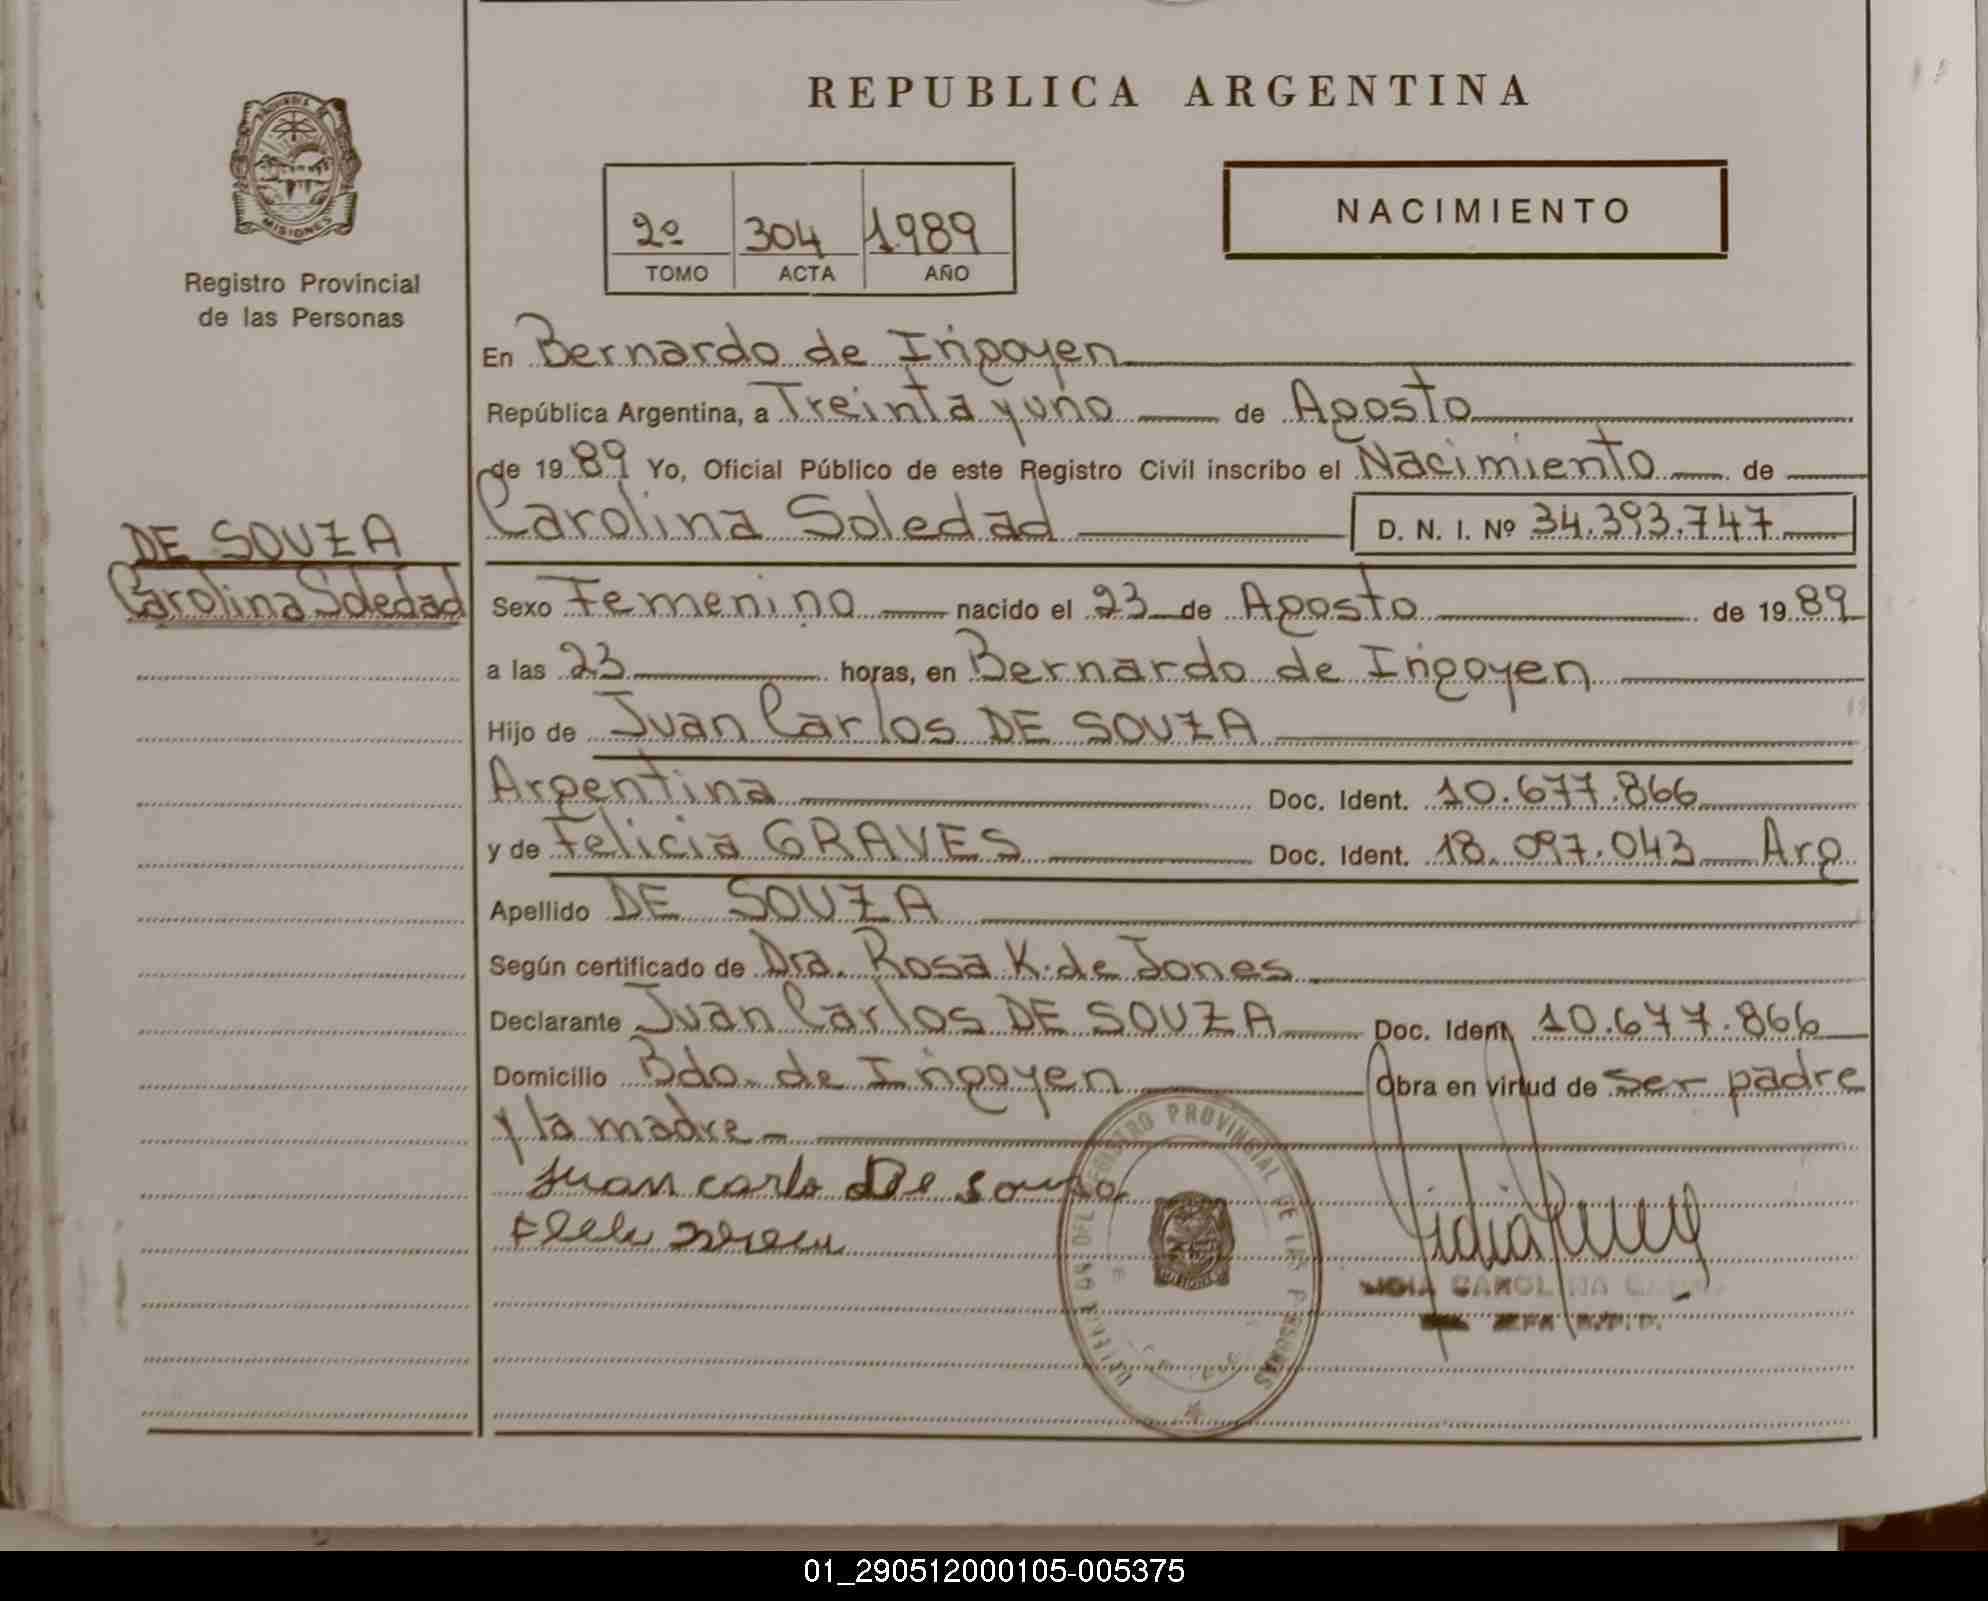 REPUBLICA ARGENTINA
MISIONES
Registro Provincial
de las Personas
2º 304 1989
TOMO ACTA AÑO
NACIMIENTO
En Bernardo de Irigoyen
República Argentina, a Treinta y uno de Agosto
de 1989 Yo, Oficial Público de este Registro Civil inscribo el Nacimiento de
Carolina Soledad D. N. I. Nº 34.393.747
DE SOUZA
Carolina Soledad
Sexo Femenino nacido el 23 de Agosto de 1989
a las 23 horas, en Bernardo de Irigoyen
Hijo de Juan Carlos DE SOUZA
Argentina Doc. Ident. 10.677.866
y de Felicia GRAVES Doc. Ident. 18.097.043 Arg
Apellido DE SOUZA
Según certificado de Dra. Rosa K. de Jones
Declarante Juan Carlos DE SOUZA Doc. Ident. 10.677.866
Domicilio Bdo. de Irigoyen Obra en virtud de ser padre
y la madre
Juan carlo De souza
REGISTRO PROVINCIAL DE LAS PERSONAS
LIDIA CAROLINA
01_290512000105-005375